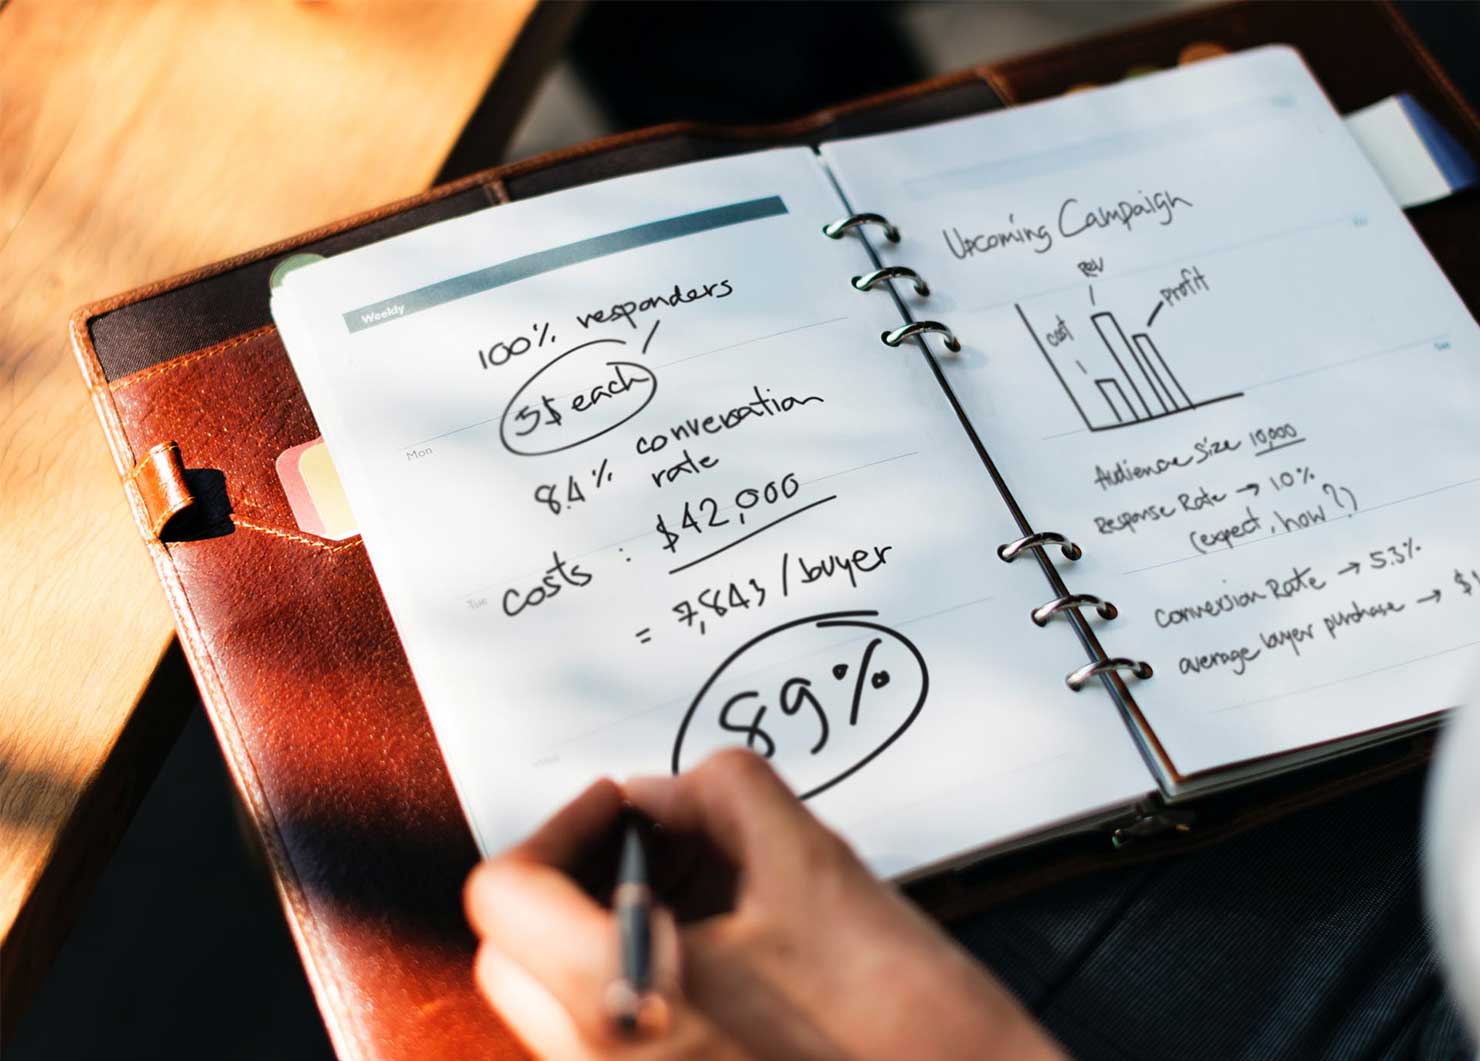 Weekly
100% responders
5$ each
Mon
8.4% conversation
rate
Tue
costs : $42,000
= 7,843 / buyer
89%
Upcoming Campaign
Rev
Profit
cost
Audience Size 10,000
Response Rate → 10%
(expect, how?)
Conversion Rate → 5.3%
average buyer purchase → $